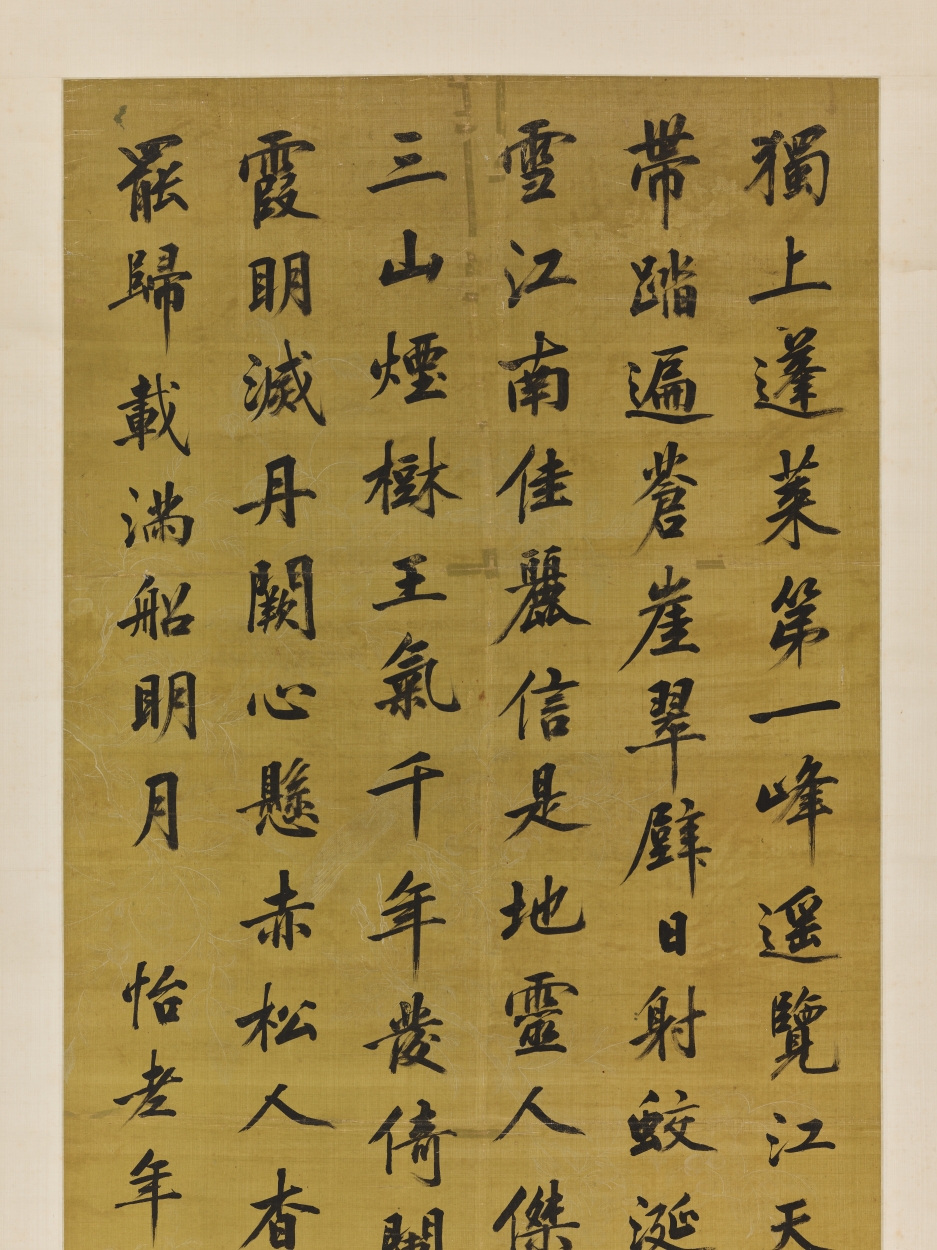 獨上蓬萊第一峰遥覽江天
帶踏遍蒼崖翠壁日射蛟涎
雪江南佳麗信是地靈人傑
三山煙樹王氣千年發倚闌
霞明滅丹闕心懸赤松人杳
罷歸載滿船明月 怡老年